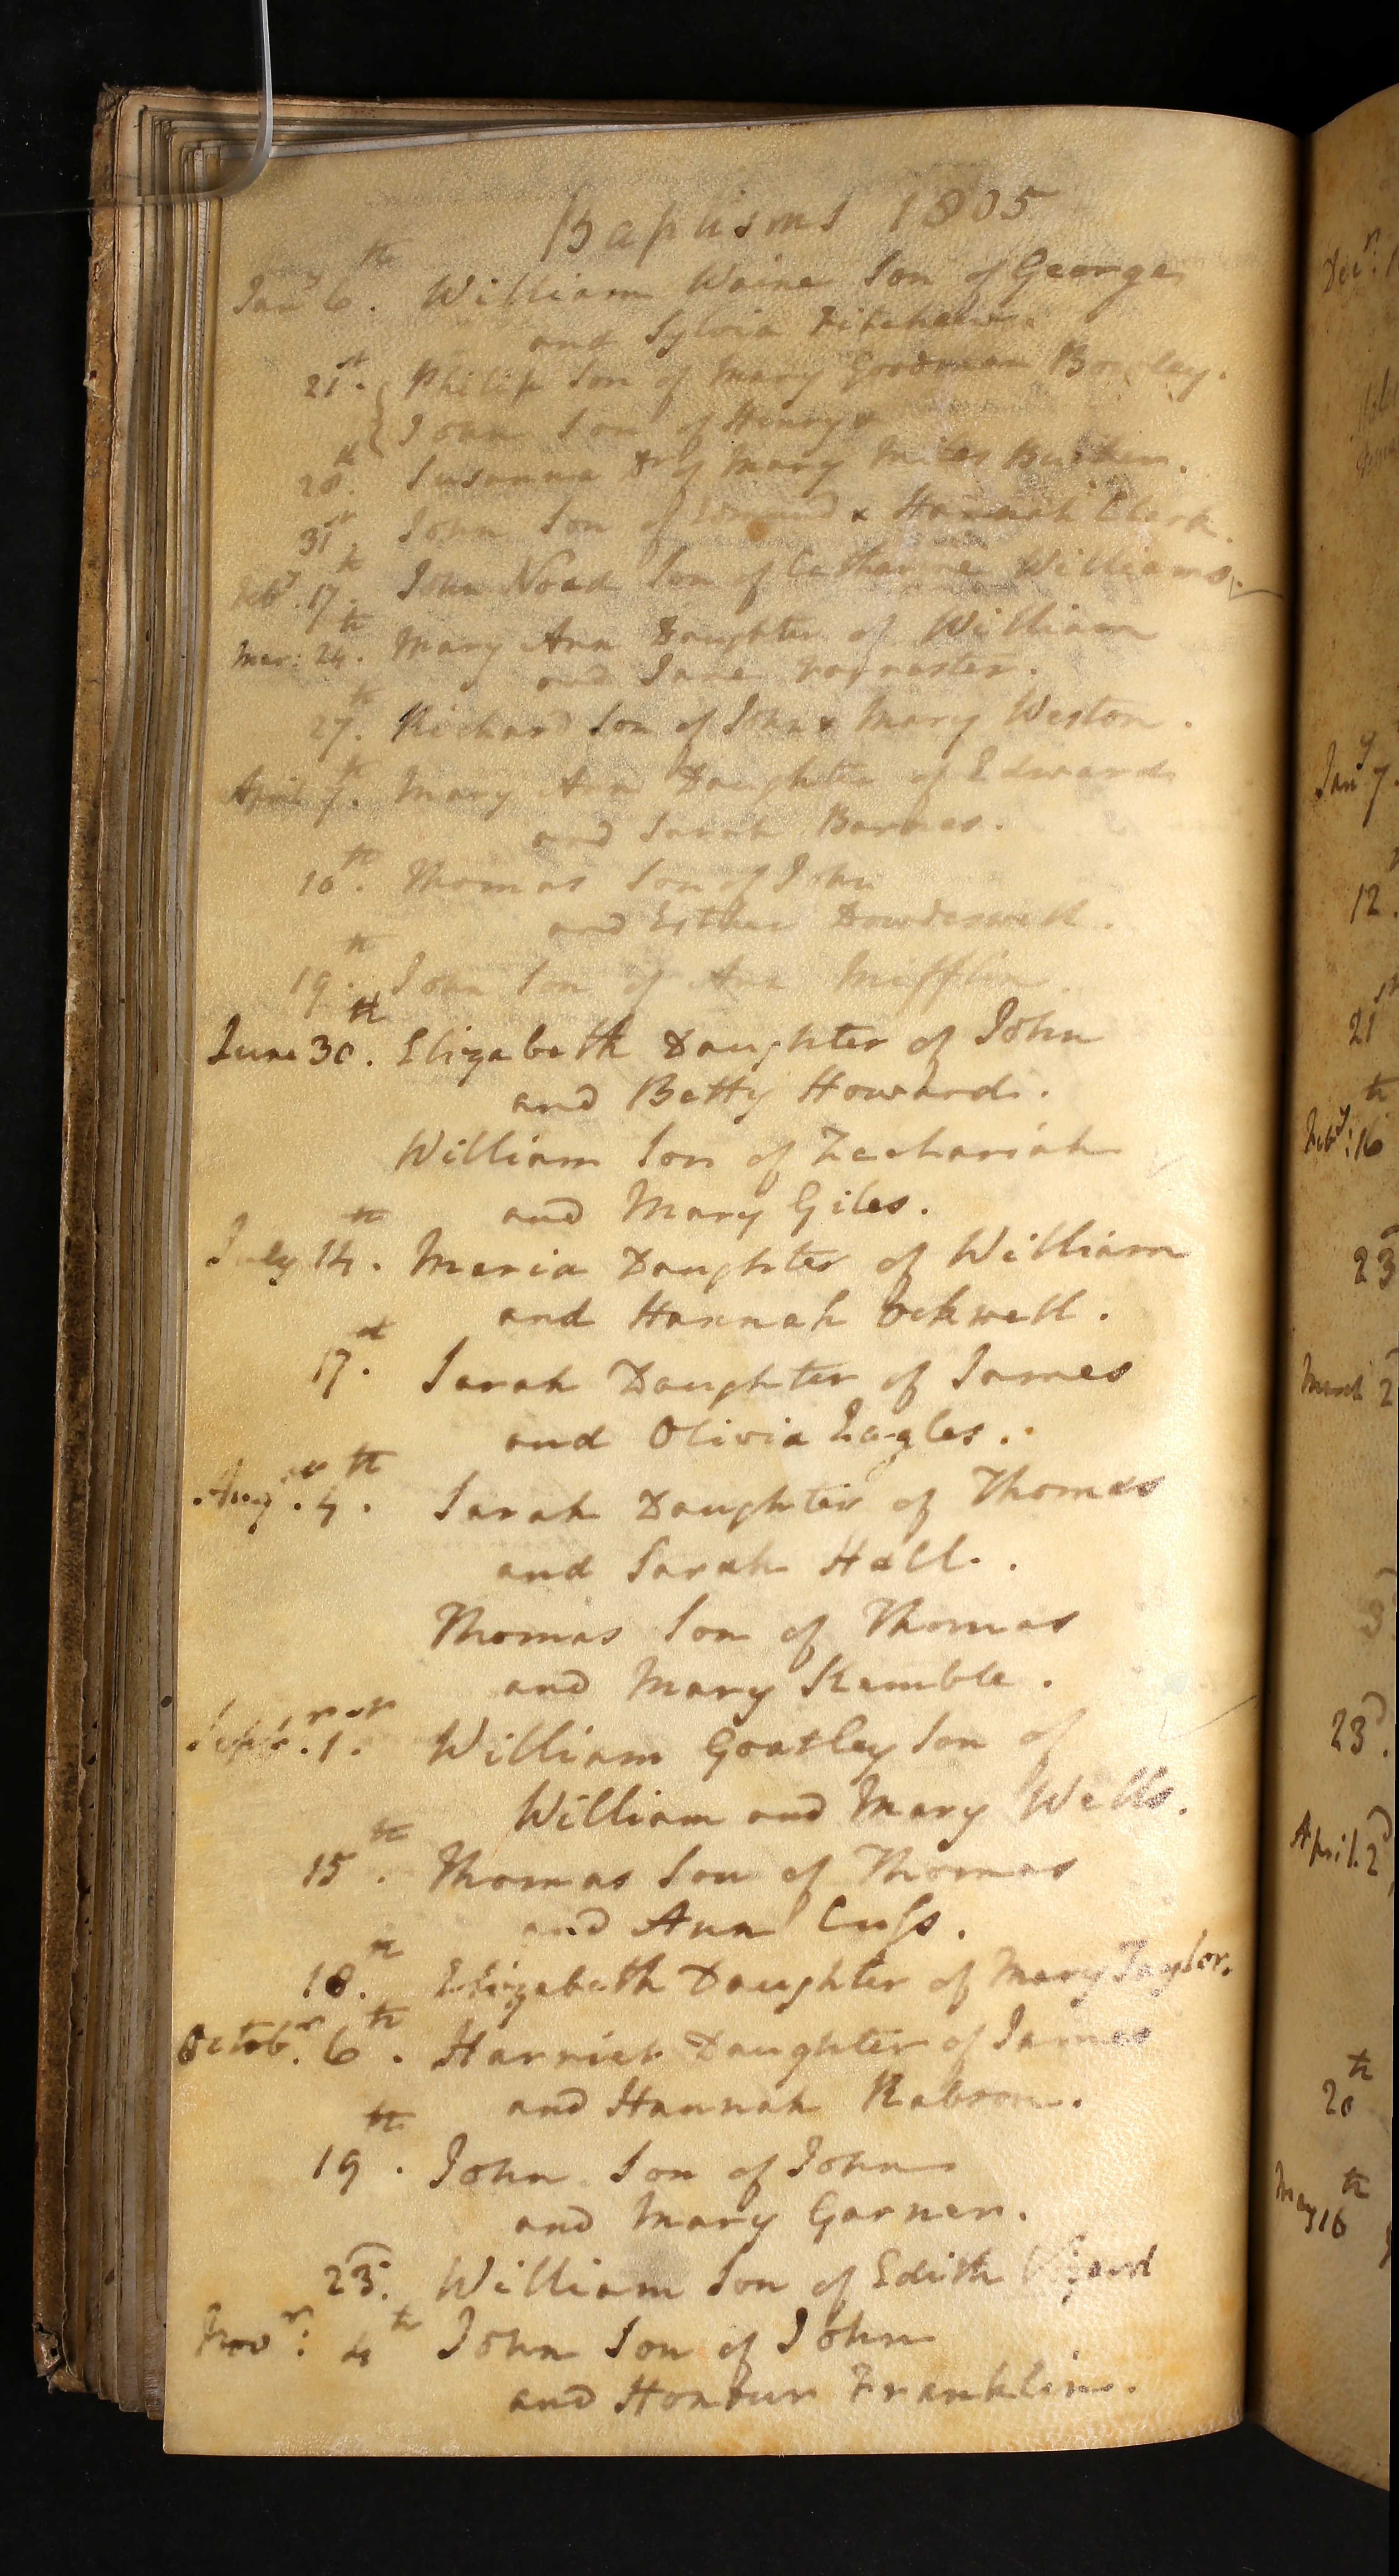 Baptisms 1805
Jan.y 6.th William Waine Son of George
and Sylvia Pitcher.
21.st Philip Son of Mary Goodman
John Son of Henry &
28.th Susanna Dr of Mary Miles
31.st John Son of Edmund & Hannah Clark.
Feb.y 17.th John Noad Son of Catharine Williams.
Mar: 24.th Mary Ann Daughter of William
and Jane Forrester.
27.th Richard Son of John & Mary Weston.
April 7.th Mary Ann Daughter of Edward
and Sarah Barnes.
16.th Thomas Son of John
and Esther Dowdeswell.
19.th John Son of Ann Mifflin.
June 30.th Elizabeth Daughter of John
and Betty Howard.
William Son of Zechariah
and Mary Giles.
July 14.th Maria Daughter of William
and Hannah Ockwell.
17. Sarah Daughter of James
and Olivia Eagles.
Aug. 4.th Sarah Daughter of Thomas
and Sarah Hall.
Thomas Son of Thomas
and Mary Kemble.
Sept.r 1.st William Goatley Son of
William and Mary Wells.
15.th Thomas Son of Thomas
and Ann Cuss.
18.th Elizabeth Daughter of Mary Taylor.
Octob.r 6.th Harriet Daughter of James
and Hannah Rabson.
19.th John Son of John
and Mary Garner.
23.d William Son of Edith
Nov.r: 4th John Son of John
and Honour Franklin.
Dec.r:
Jan.y 7
12
21st
Feb.y: 16th
23
March 2
23.d
April. 2d
20th
May 16th